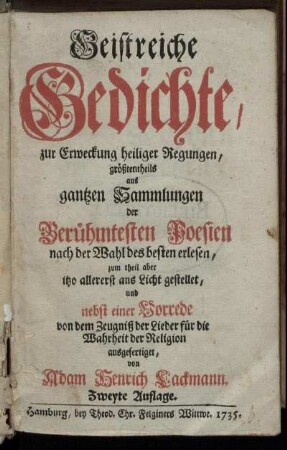 Geistreiche
Gedichte,
zur Erweckung heiliger Regungen,
größtentheils
aus
gantzen Sammlungen
der
Berühmtesten Poesien
nach der Wahl des besten erlesen,
zum theil aber
itzo allererst ans Licht gestellet,
und
nebst einer Vorrede
von dem Zeugniß der Lieder für die
Wahrheit der Religion
ausgefertiget,
von
Adam Henrich Lackmann.
Zweyte Auflage.
Hamburg, bey Theod. Chr. Felginers Wittwe. 1735.